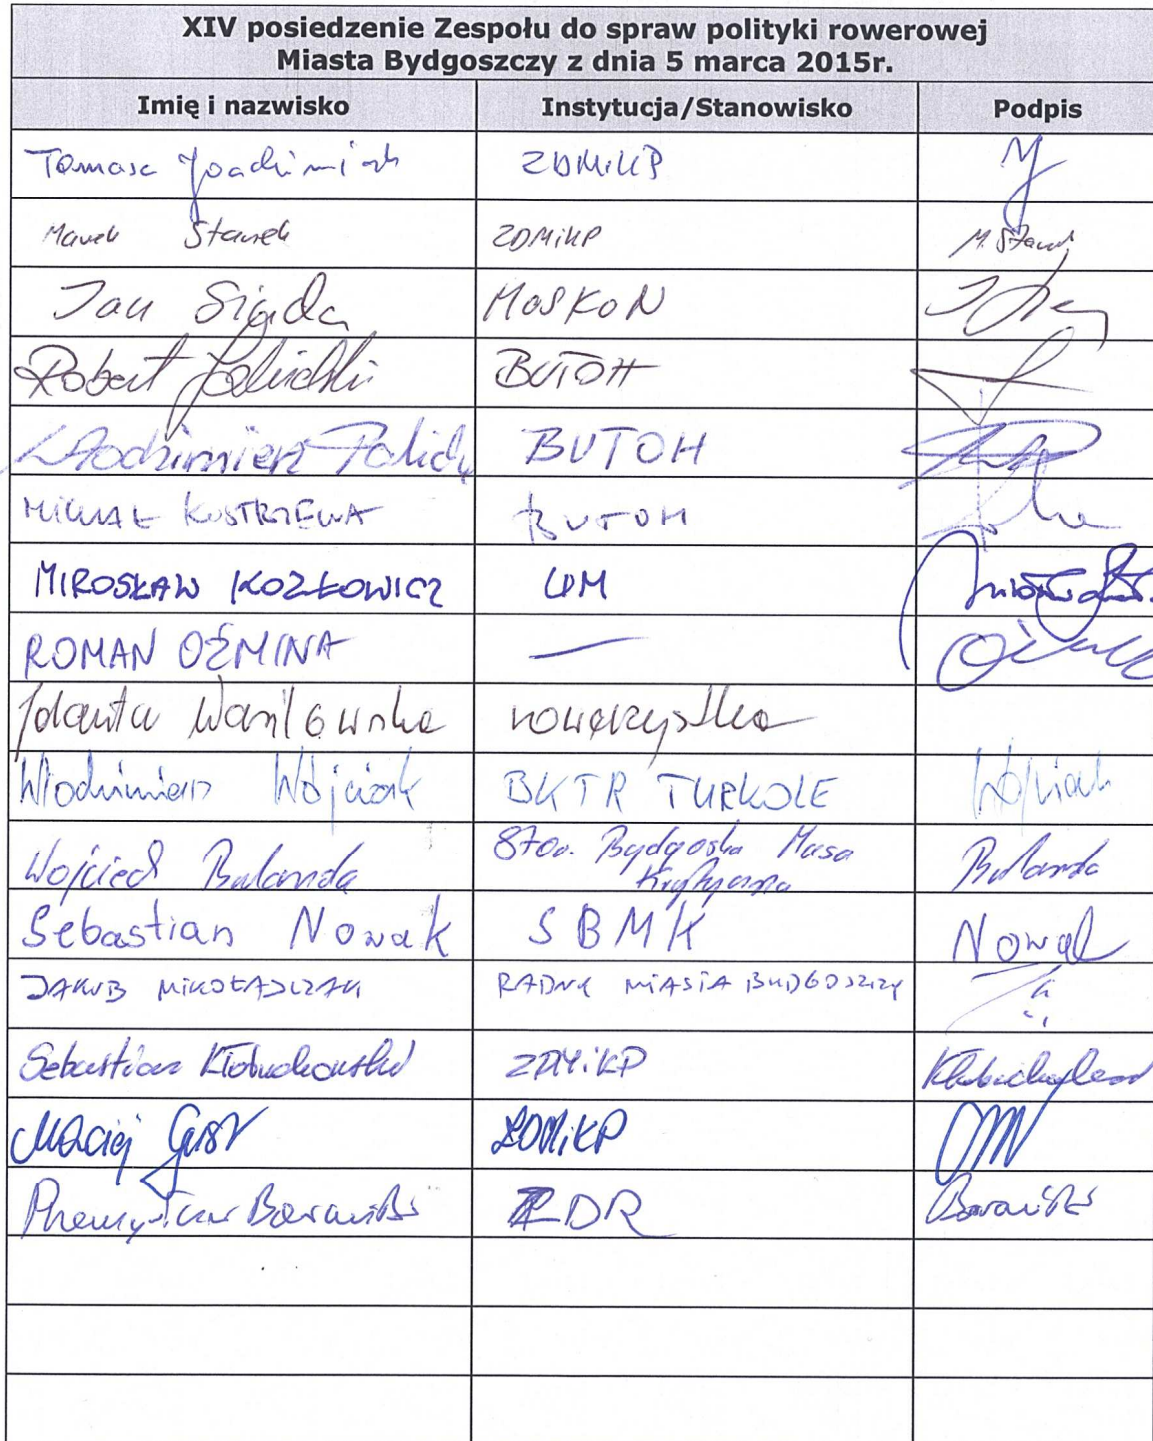 XIV posiedzenie Zespołu do spraw polityki rowerowej
Miasta Bydgoszczy z dnia 5 marca 2015r.
Imię i nazwisko Instytucja/Stanowisko Podpis
Tomasz Joachimiak ZDMiKP
Marek Stanek ZDMiKP M. Stanek
Jan Siuda MOSKON
Robert BUTOH
Włodzimierz BUTOH
MICHAŁ KOSTRZEWA BUTOH
MIROSŁAW KOZŁOWICZ UM
ROMAN OŹMINA —
Jolanta Wasilewska rowerzystka
Włodzimierz Wójciak BKTR TURKOLE Wójciak
Wojciech Bulanda Stow. Bydgoska Masa Bulanda
Krytyczna
Sebastian Nowak SBMK Nowak
JAKUB MIKOŁAJCZAK RADNY MIASTA BYDGOSZCZY
Sebastian ZDMiKP
Maciej Gust ZDMiKP
Przemysław Barański ZDR Barański